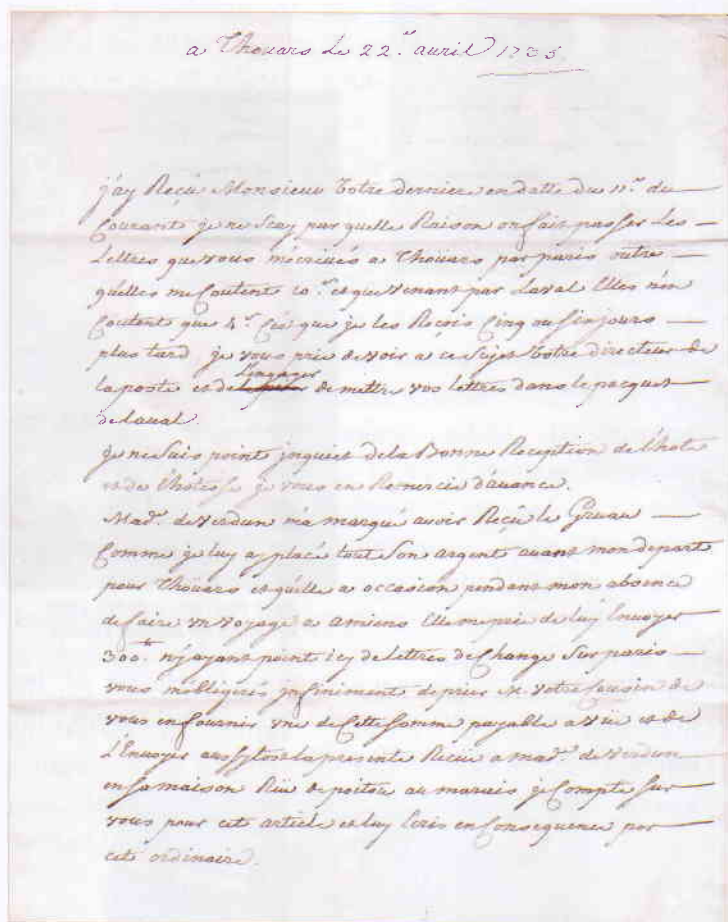 a Thoüars Le 22.e avril 1735
j'ay Reçû Monsieur Votre derniere en datte du 11.e du
Courant je ne sçay par quelle Raison on fait passer Les
Lettres que vous m'ecrivés a Thoüars par paris outre
qu'elles me Coutent 10.s et que venant par Laval Elles n'en
Coutent que 4.s C'est que je les Reçois Cinq ou six jours
plus tard je vous prie de voir à ce sujet Votre directeur de
la poste et de L'engager de mettre vos lettres dans le pacquet
de Laval.
je ne suis point inquiet de la Bonne Reception de l'hote
et de l'hotesse je vous en Remercie d'avance.
Mad.e de Verdun m'a marqué avoir Reçû le Gruau
Comme je luy ay placé tout Son argent avant mon depart
pour Thoüars et qu'elle a occasion pendant mon absence
de faire un voyage a amiens Elle me prie de luy Envoyer
300.tt n'ayant point icy de Lettres de Change Sur paris
vous m'obligerés infiniment de prier M votre Cousin de
vous en fournir une de Cette somme payable a vüe et de
L'Envoyer aussytost la presente Reçüe a mad.e de Verdun
en sa maison Rüe de poitou au marais je Compte sur
vous pour cet article et luy Ecris en Consequence par
cet ordinaire.